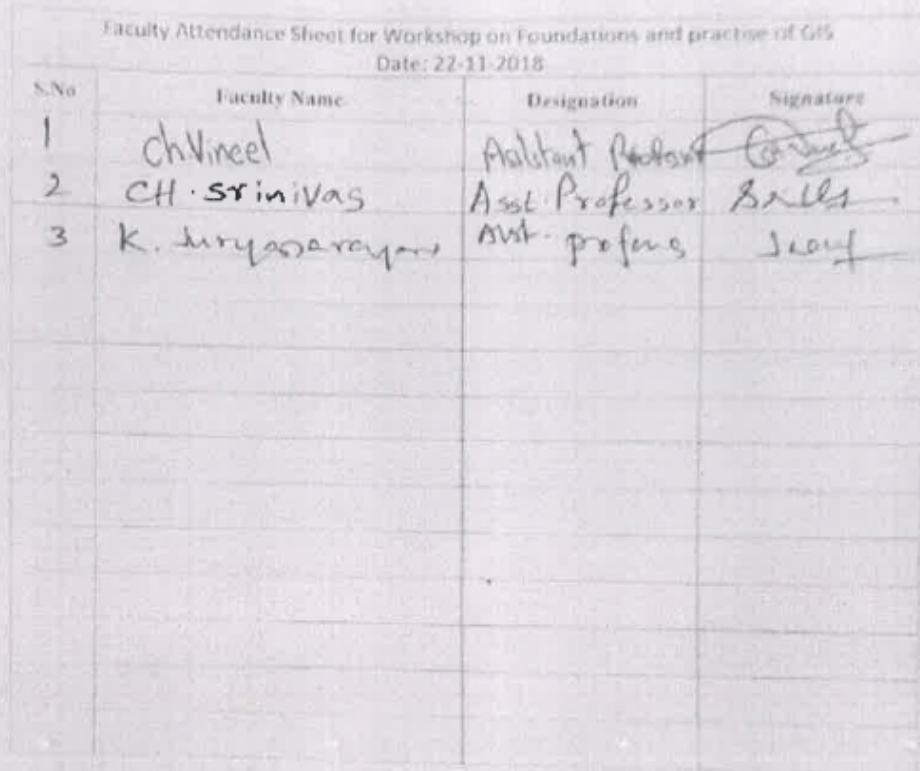 Faculty Attendance Sheet for Workshop on Foundations and practise of GIS
Date: 22-11-2018
S.No Faculty Name Designation Signature
1 Ch.Vineel Assistant Professor
2 CH. Srinivas Asst. Professor
3 K. Suryanarayana Asst. professor